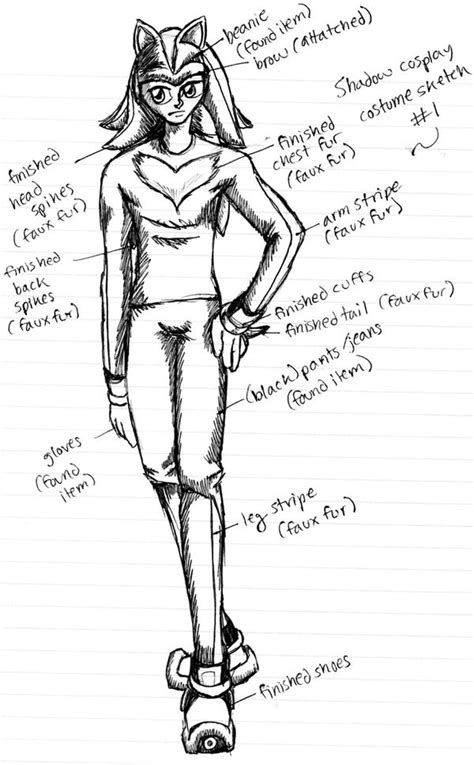 beanie
(found item)
brow (attatched)
Shadow cosplay
costume sketch
#1
finished
chest fur
(faux fur)
finished
head
spikes
(faux fur)
arm stripe
(faux fur)
finished
back
spikes
(faux fur)
finished cuffs
finished tail (faux fur)
(black) pants/jeans
(found item)
gloves
(found
item)
leg stripe
(faux fur)
finished shoes